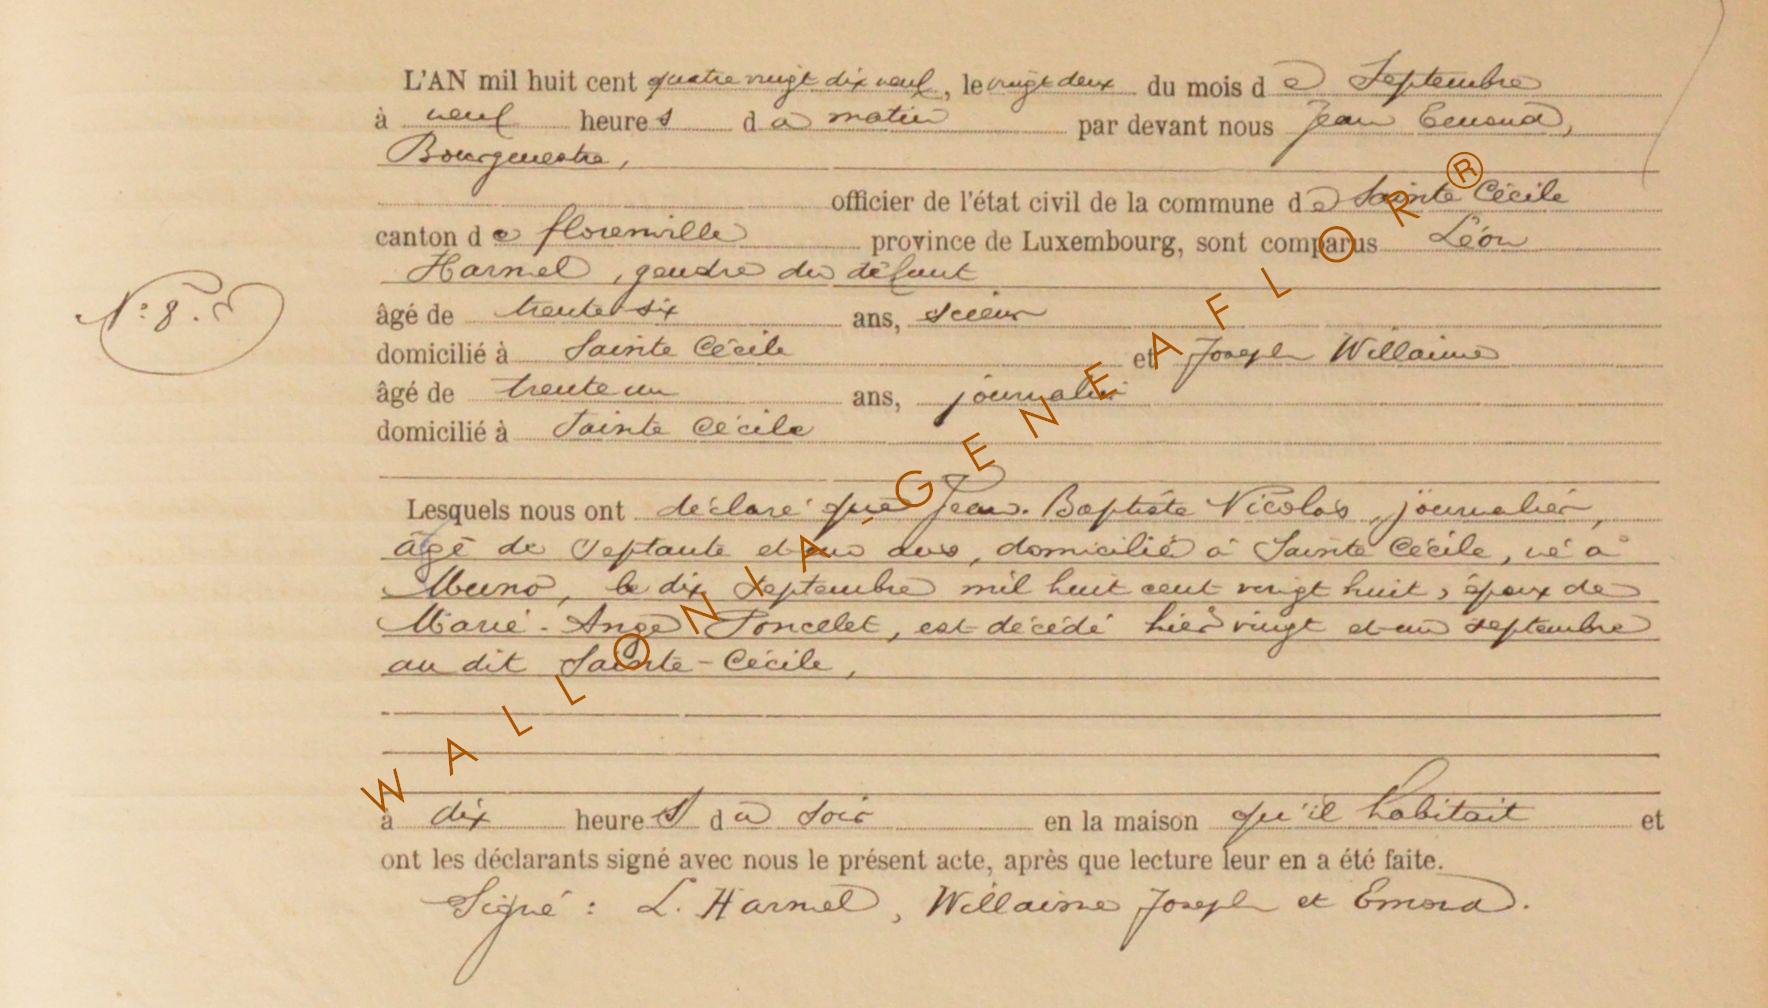 L'AN mil huit cent quatre vingt dix neuf, le vingt deux du mois de Septembre
à neuf heures du matin par devant nous Jean Emond,
Bourgmestre,
officier de l'état civil de la commune de Sainte Cécile
canton de florenville province de Luxembourg, sont comparus Léon
Harmel, gendre du défunt
N° 8.
âgé de trente six ans, scieur
domicilié à Sainte Cécile et Joseph Willaime
âgé de trente un ans, journalier
domicilié à Sainte Cécile
Lesquels nous ont déclaré que Jean-Baptiste Nicolas, journalier,
âgé de Septante et un ans, domicilié à Sainte Cécile, né à
Muno, le dix Septembre mil huit cent vingt huit, époux de
Marie-Ange Poncelet, est décédé hier vingt et un septembre
au dit Sainte-Cécile,
à dix heures du soir en la maison qu'il habitait et
ont les déclarants signé avec nous le présent acte, après que lecture leur en a été faite.
Signé : L. Harmel, Willaime Joseph et Emond.
WALLONIA-GENEAFLOR®